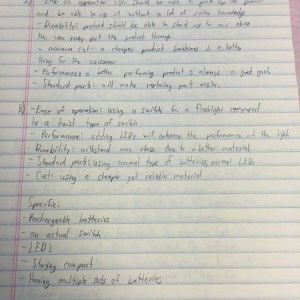 a) - Ease of operation: User should be able to pick up the product
and be able to use it without a lot of prior knowledge
- Durability: product should be able to stand up to any abuse
the user may put the product through
- minimum cost: a cheaper product is a better
thing for the consumer
- Performance: a better performing product is always a good goal
- Standard parts: will make replacing parts easier.
b) - Ease of operation: using a switch for a flashlight compared
to a twist type of switch
- Performance: adding LEDs will enhance the performance of the light
- Durability: withstand more abuse due to a better material
- Standard parts: using normal type of batteries, normal LEDs
- Cost: using a cheaper yet reliable material
Specific:
- Rechargeable batteries
- no actual switch
- LEDs
- Staying compact
- Having multiple sets of batteries